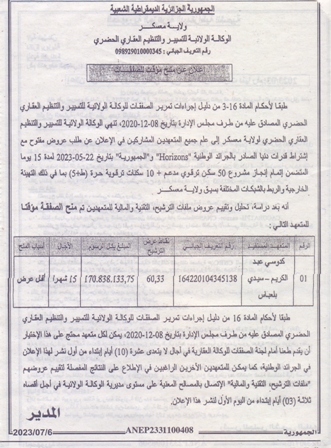 الجمهورية الجزائرية الديمقراطية الشعبية
ولاية معسكر
الوكالة الولائية للتسيير والتنظيم العقاري الحضري
رقم التعريف الجبائي: 098929010000345
إعلان عن منح مؤقت للصفقات
طبقا لأحكام المادة 16-3 من دليل إجراءات تمرير الصفقات للوكالة الولائية للتسيير والتنظيم العقاري
الحضري المصادق عليه من طرف مجلس الإدارة بتاريخ 08-12-2020، تنهي الوكالة الولائية للتسيير والتنظيم
العقاري الحضري لولاية معسكر إلى علم جميع المتعهدين المشاركين في الإعلان عن طلب عروض مفتوح مع
إشتراط قدرات دنيا الصادر بالجرائد الوطنية "Horizons" و"الجمهورية" بتاريخ 22-05-2023 لمدة 15 يوما
المتضمن إتمام إنجاز مشروع 50 سكن ترقوي مدعم + 10 سكنات ترقوية حرة (ط+5) بما في ذلك التهيئة
الخارجية والربط بالشبكات المختلفة بسيق ولاية معسكر
أنه بعد دراسة، تحليل وتقييم عروض ملفات الترشيح، التقنية والمالية للمتعهدين تم منح الصفقة مؤقتا
للمتعهد التالي:
الرقم المتعهد المستفيد رقم التعريف الجبائي نقاط عرض الترشيح المبلغ بكل الرسوم الآجال أسباب المنح
01 كدوسي عبد الكريم – سيدي بلعباس 164220104345138 60,33 170.838.133,75 15 شهرا أقل عرض
طبقا لأحكام المادة 16 من دليل إجراءات تمرير الصفقات للوكالة الولائية للتسيير والتنظيم العقاري
الحضري المصادق عليه من طرف مجلس الإدارة بتاريخ 08-12-2020، يمكن لكل متعهد محتج على هذا الإختيار
أن يقدم طعنا أمام لجنة الصفقات للوكالة العقارية في آجال لا يتعدى عشرة (10) أيام إبتداء من أول نشر لهذا الإعلان
في الجرائد الوطنية، كما يمكن للمتعهدين الآخرين الراغبين في الإطلاع على النتائج المفصلة لتقييم عروضهم
"ملفات الترشيح، التقنية والمالية" الإتصال بالمصالح المعنية على مستوى مديرية الوكالة الولائية في أجل أقصاه
ثلاثة (03) أيام إبتداء من اليوم الأول لنشر هذا الإعلان.
المدير
الجمهورية ANEP2331100408 2023/07/6